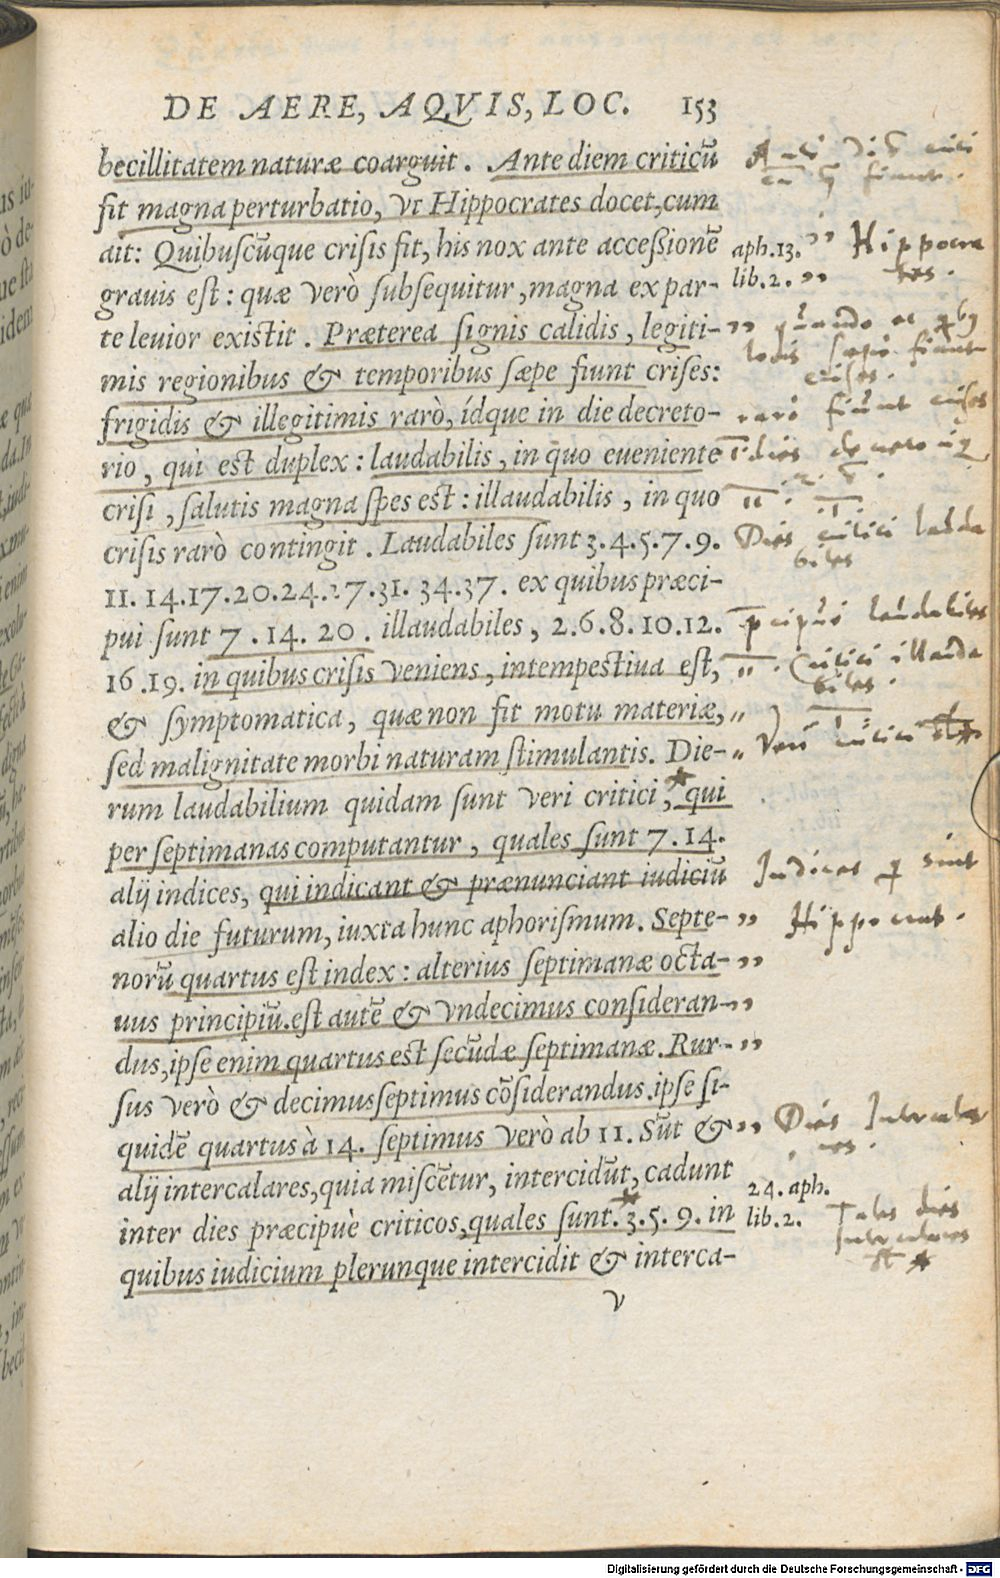 DE AERE, AQVIS, LOC. 153
becillitatem naturæ coarguit. Ante diem criticũ
fit magna perturbatio, vt Hippocrates docet, cum
ait: Quibuscũque crisis fit, his nox ante accessionẽ
aph.13.
grauis est: quæ verò subsequitur, magna ex par-
lib.2. „
te leuior existit. Præterea signis calidis, legiti- „
mis regionibus & temporibus sæpe fiunt crises:
frigidis & illegitimis rarò, ídque in die decreto-
rio, qui est duplex: laudabilis, in quo eueniente
crisi, salutis magna spes est: illaudabilis, in quo
crisis rarò contingit. Laudabiles sunt 3.4.5.7.9.
11. 14.17.20.24.27.31. 34.37. ex quibus præci-
pui sunt 7. 14. 20. illaudabiles, 2.6.8.10.12.
16.19. in quibus crisis veniens, intempestiua est,
& symptomatica, quæ non fit motu materiæ, „
sed malignitate morbi naturam stimulantis. Die- „
rum laudabilium quidam sunt veri critici, qui
per septimanas computantur, quales sunt 7.14.
alij indices, qui indicant & prænunciant iudiciũ
alio die futurum, iuxta hunc aphorismum. Septe- „
norũ quartus est index: alterius septimanæ octa- „
uus principiũ. est autẽ & vndecimus consideran- „
dus, ipse enim quartus est secũdæ septimanæ. Rur- „
sus verò & decimusseptimus cõsiderandus. ipse si-
quidẽ quartus à 14. septimus verò ab 11. Sũt & „
alij intercalares, quia miscẽtur, intercidũt, cadunt
24. aph.
inter dies præcipuè criticos, quales sunt. 3.5.9. in
lib.2.
quibus iudicium plerunque intercidit & interca-
v
Hippocra
tes.
rarò fiunt crises
Dies critici lauda
biles
laudabiles
Critici illauda
biles.
Veri critici
Indices
sint
Hippocrat.
Dies Intercalar
es.
Tales dies
Intercalares
Digitalisierung gefördert durch die Deutsche Forschungsgemeinschaft - DFG